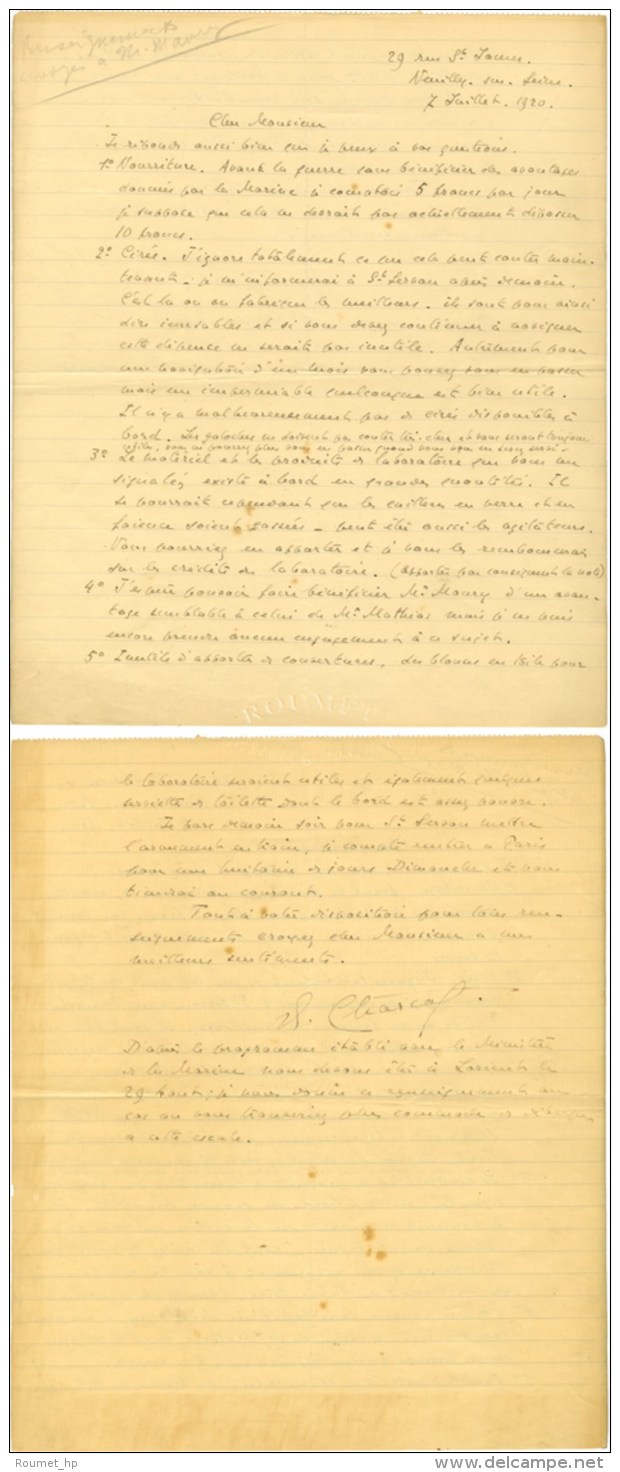 Renseignements
envoyés à M. Maury
29 rue St. James.
Neuilly-sur-Seine.
7 Juillet. 1920.
Cher Monsieur
Je réponds aussi bien que je peux à vos questions.
1º Nourriture. Avant la guerre sans bénéficier des avantages
donnés par la Marine je comptais 5 francs par jour
je suppose que cela ne devrait pas actuellement dépasser
10 francs.
2º Cirés. J'ignore totalement ce que cela peut coûter main-
tenant - je m'informerai à St Servan après demain.
C'est là où on fabrique les meilleurs. ils sont pour ainsi
dire inusables et si vous devez continuer à naviguer
cette dépense ne serait pas inutile. Autrement pour
une navigation d'un mois vous pouvez vous en passer
mais un imperméable quelconque est bien utile.
Il n'y a malheureusement pas de cirés disponibles à
bord. Les galoches ne doivent pas coûter très cher et vous seront toujours
utiles, vous ne pourrez plus vous en passer quand vous vous en serez servi.
3º Le matériel et les produits de laboratoire que vous me
signalez existe à bord en grande quantité. Il
se pourrait cependant que les cuillers en verre et en
faïence soient cassées - peut être aussi les agitateurs.
Vous pourriez en apporter et je vous les rembourserais
sur les crédits du laboratoire. (apporter par conséquent la note)
4º J'espère pouvoir faire bénéficier Mr. Maury d'un avan-
tage semblable à celui de Mr. Mathias mais je ne puis
encore prendre aucun engagement à ce sujet.
5º Inutile d'apporter de couvertures, des blouses en toile pour
ROUMET
le laboratoire seraient utiles et également quelques
serviettes de toilette dont le bord est assez pauvre.
Je pars demain soir pour St. Servan mettre
l'armement en train, je compte rentrer à Paris
pour une huitaine de jours Dimanche et vous
tiendrai au courant.
Tout à votre disposition pour tous ren-
seignements croyez cher Monsieur à mes
meilleurs sentiments.
J. Charcot
D'après le programme établi avec le Ministère
de la Marine nous devons être à Lorient le
29 Août; je vous donne ce renseignement au
cas où vous trouveriez plus commode de
à cette escale.
Roumet_hp